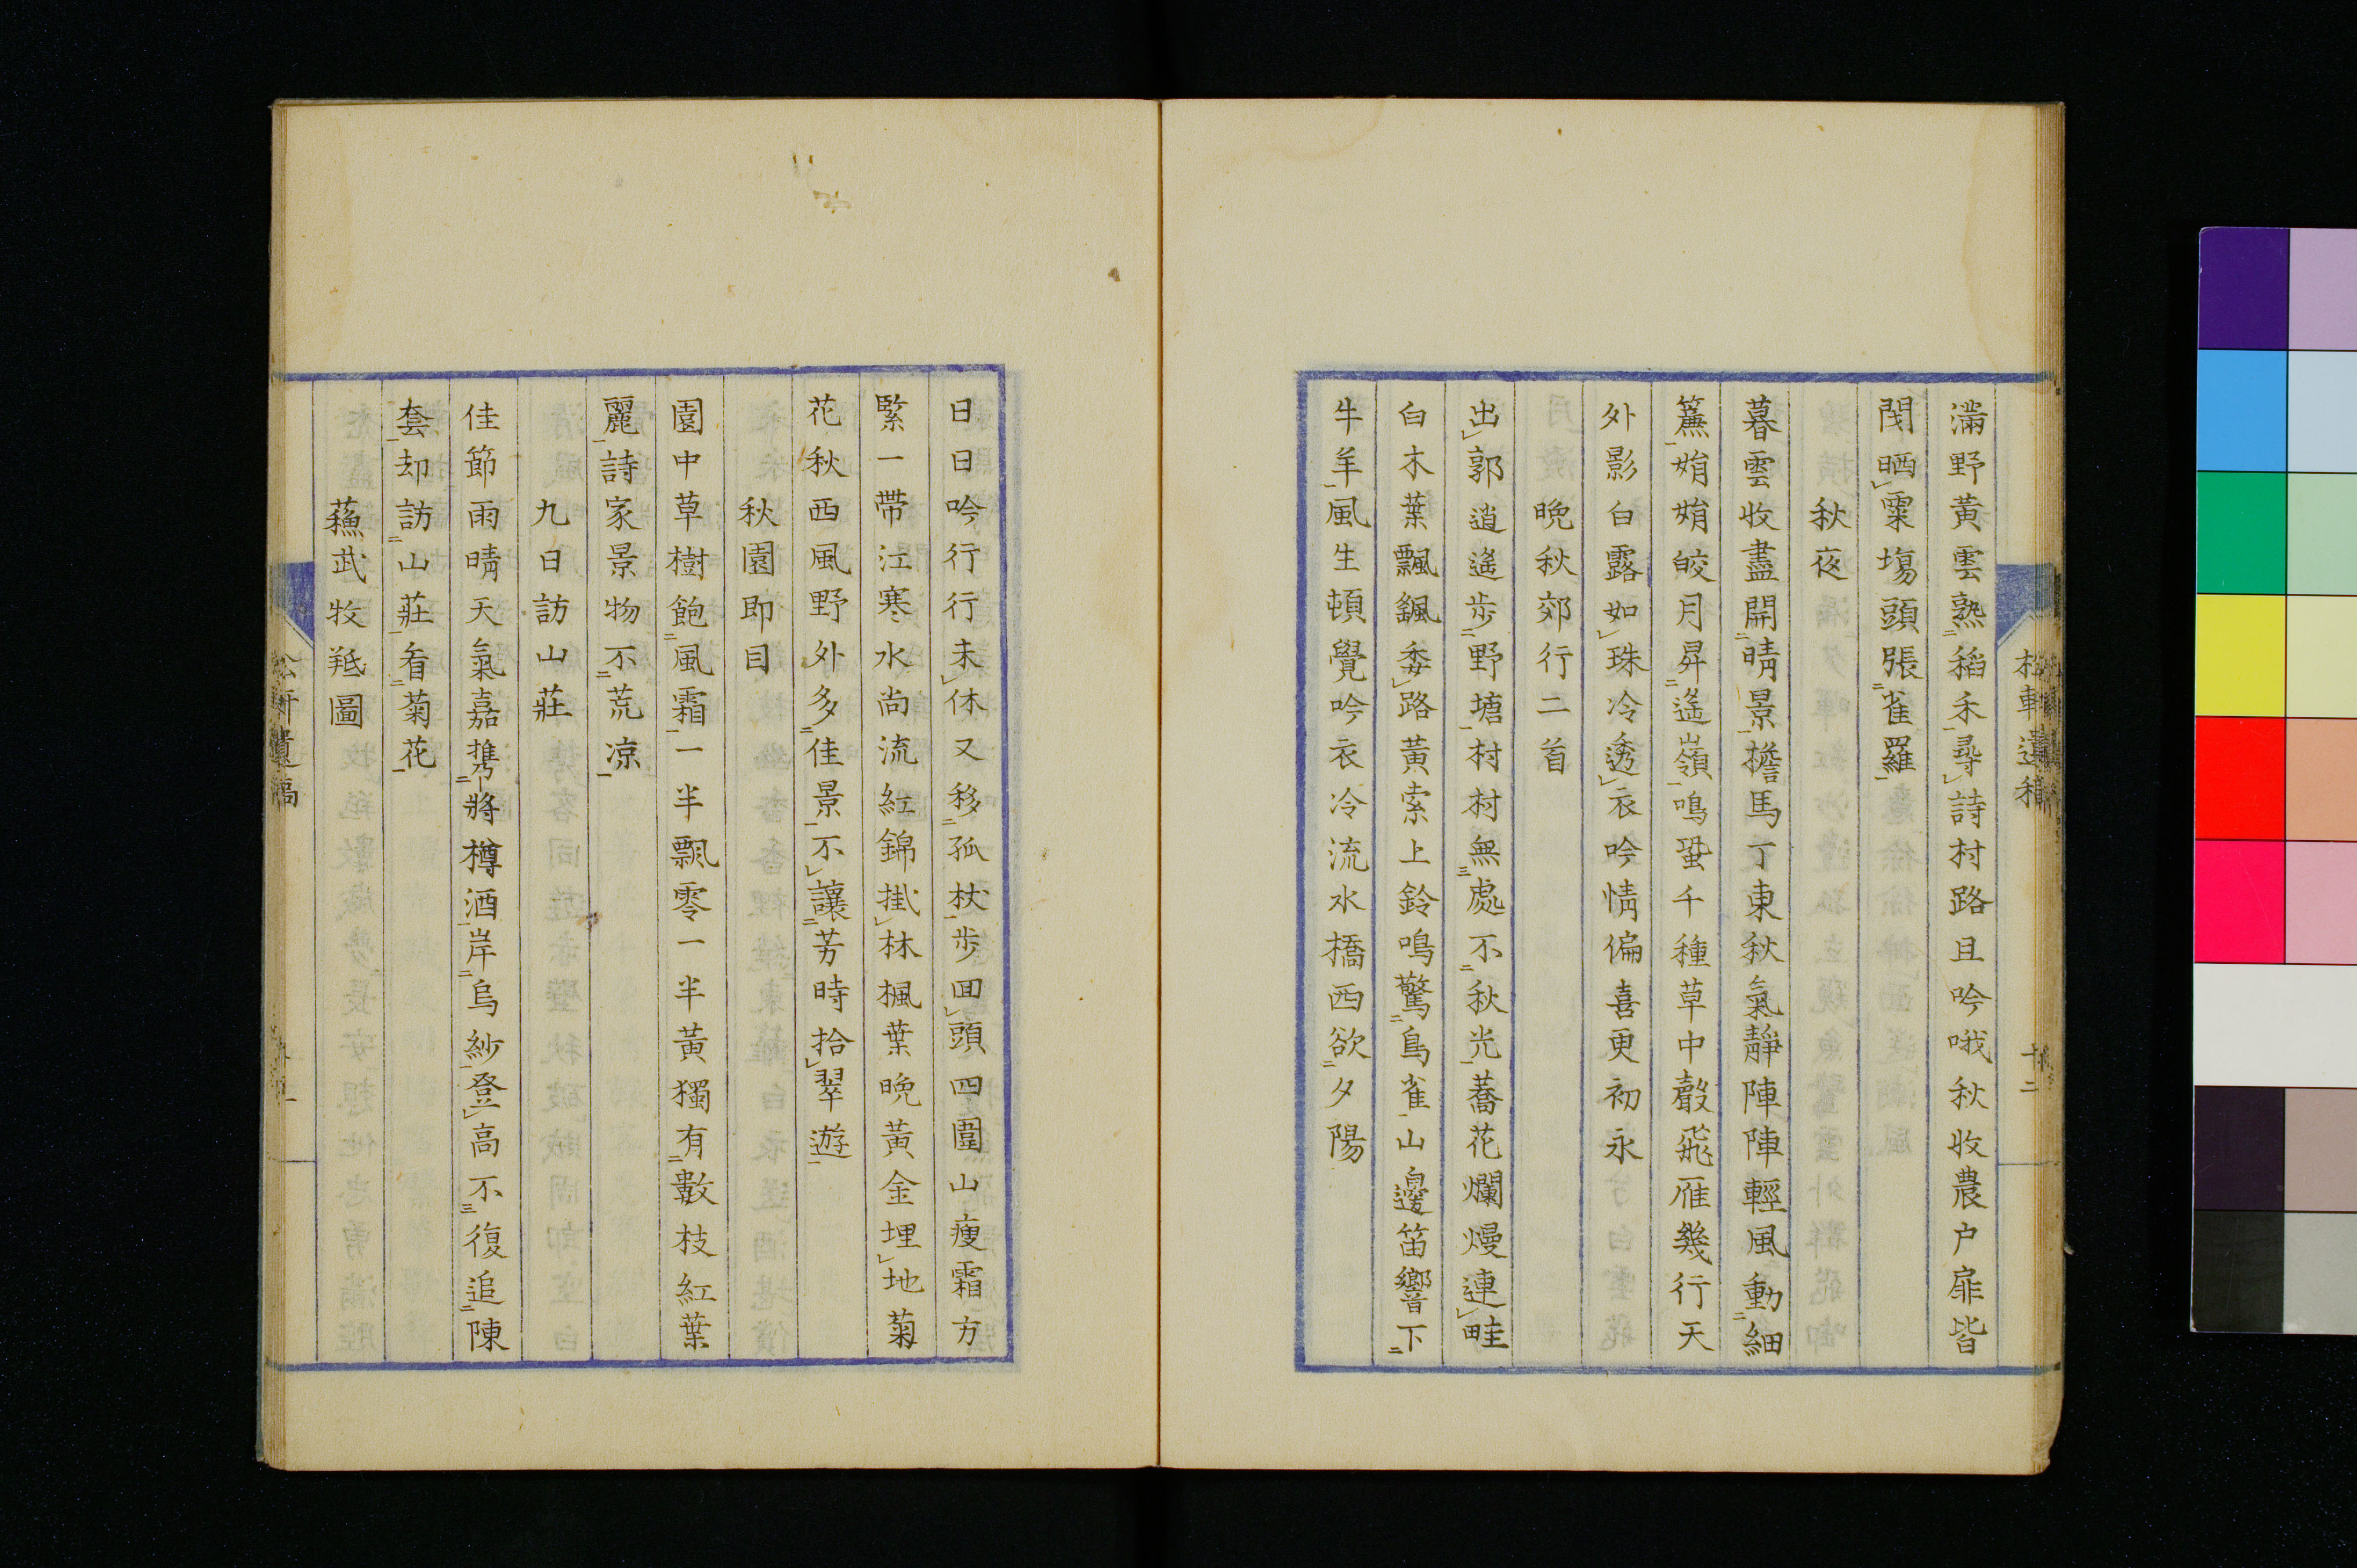 滿野黃雲熟稻禾尋詩村路且吟哦秋收農户扉皆
閉晒粟塲頭張雀羅
秋夜
暮雲收盡開晴景檐馬丁東秋氣靜陣陣輕風動細
簾娟娟皎月昇遙嶺鳴蛩千種草中聲飛雁幾行天
外影白露如珠冷透衣吟情偏喜更初永
晩秋郊行二首
出郭逍遙步野塘村村無處不秋光蕎花爛熳連畦
白木葉飄飄委路黃索上鈴鳴驚鳥雀山邊笛響下
牛羊風生頓覺吟衣冷流水橋西欲夕陽
日日吟行行未休又移孤杖步回頭四圍山瘦霜方
緊一帶江寒水尚流紅錦掛林楓葉晩黃金埋地菊
花秋西風野外多佳景不讓芳時拾翠遊
秋園即目
園中草樹飽風霜一半飄零一半黃獨有數枝紅葉
麗詩家景物不荒凉
九日訪山莊
佳節雨晴天氣嘉携將樽酒岸烏紗登高不復追陳
套却訪山莊看菊花
蘓武牧羝圖